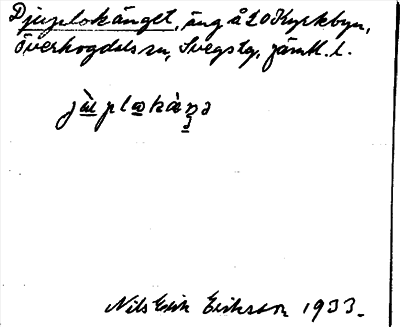 Djuplokänget, äng å 20 Kyrkbyn,
Överhogdals sn, Svegs tg, Jämtl. l.
Nils Erik Eriksson 1933.